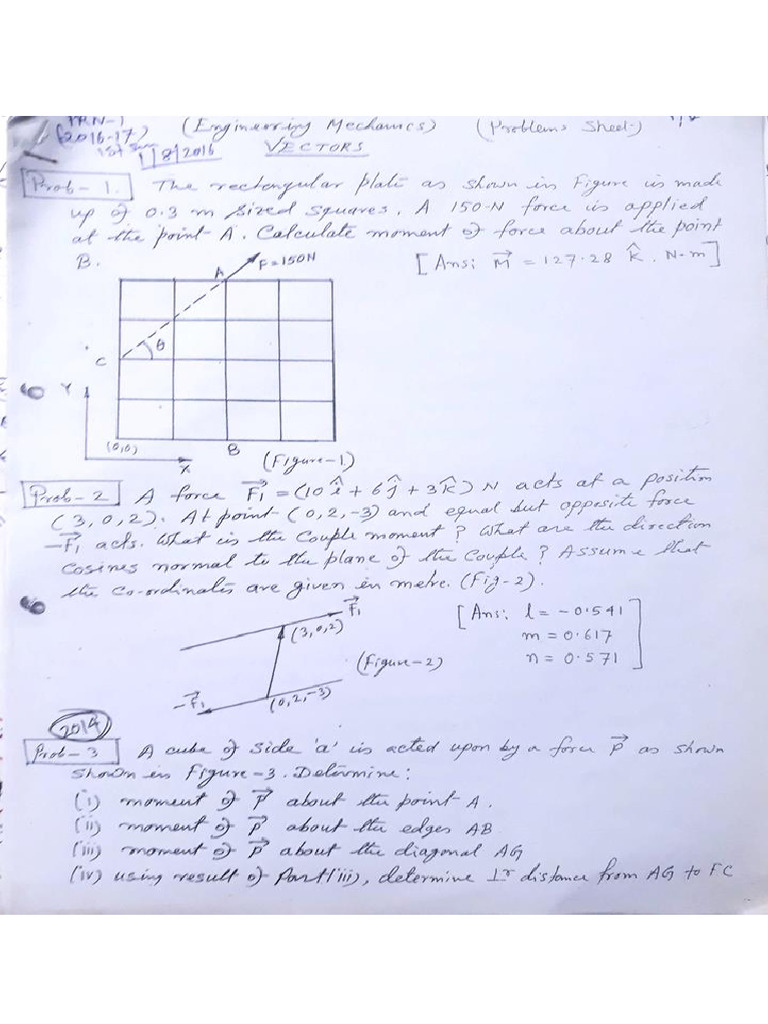 PRN-1 (Engineering Mechanics) (Problems Sheet)
(2016-17)
1st Sem 1/8/2016 VECTORS
Prob-1. The rectangular plate as shown in Figure is made
up of 0.3 m sized squares. A 150-N force is applied
at the point A. Calculate moment of force about the point
B. [Ans: M⃗ = 127.28 k̂. N-m]
A F=150N
θ
C
Y
(0,0) B
X (Figure-1)
Prob-2 A force F⃗₁ = (10 î + 6 ĵ + 3 k̂) N acts at a position
(3, 0, 2). At point (0, 2, -3) and equal but opposite force
-F⃗₁ acts. What is the Couple moment? What are the direction
cosines normal to the plane of the couple? Assume that
the co-ordinates are given in metre. (Fig-2).
F⃗₁ [Ans: l = -0.541
(3,0,2) m = 0.617
(Figure-2) n = 0.571]
-F⃗₁ (0,2,-3)
2014
Prob-3 A cube of side 'a' is acted upon by a force P⃗ as shown
shown in Figure-3. Determine:
(i) moment of P⃗ about the point A.
(ii) moment of P⃗ about the edges AB
(iii) moment of P⃗ about the diagonal AG
(iv) using result of Part(iii), determine ⊥r distance from AG to FC